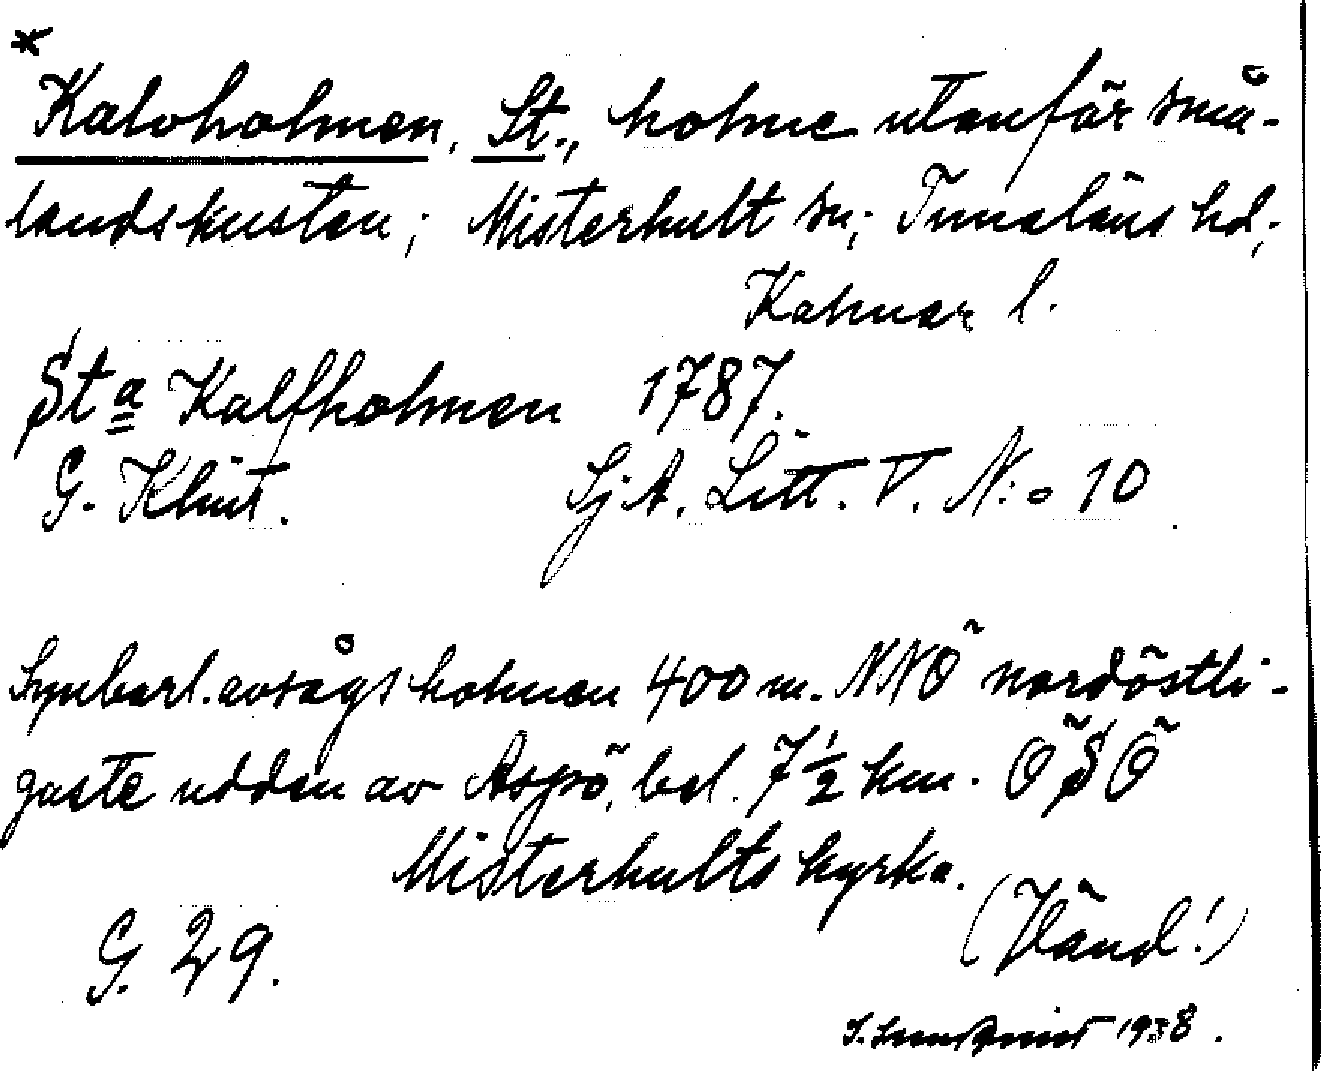 *
Kalvholmen, St., holme utanför små-
landskusten; Misterhult sn; Tunaläns hd;
Kalmar l.
Sta Kalfholmen 1787.
G. Klint. Sj A. Litt. V. N:o 10
Synbarl. avsågs holmen 400 m. NNÖ nordöstli-
gaste udden av Aspö, bel. 7 1/2 km. ÖSÖ
Misterhults kyrka.
(Vänd!)
G. 29.
1938.